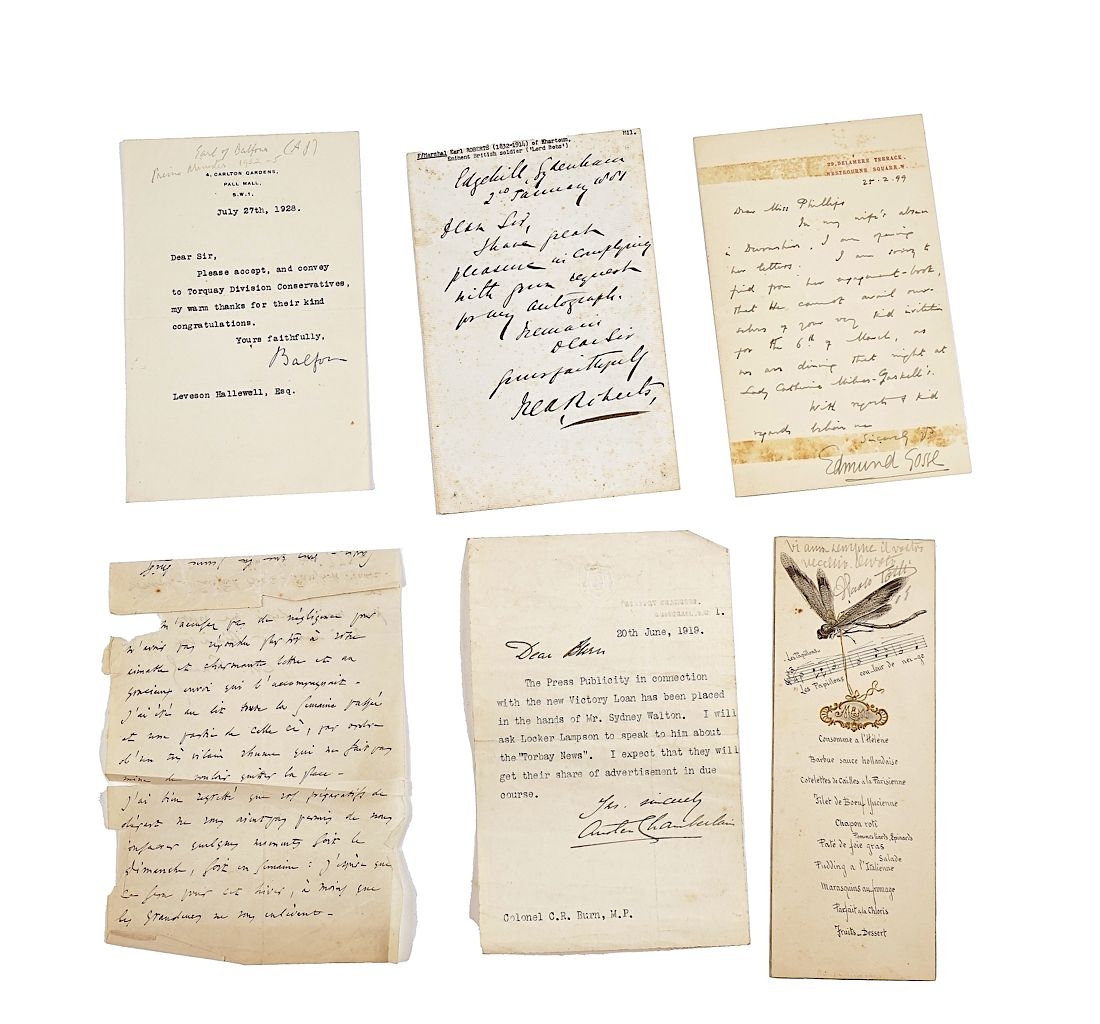 Earl of Balfour (A J)
Prime Minister 1922-5
4, CARLTON GARDENS,
PALL MALL,
S.W.1.
July 27th, 1928.
Dear Sir,
Please accept, and convey
to Torquay Division Conservatives,
my warm thanks for their kind
congratulations.
Yours faithfully,
Balfour
Leveson Hallewell, Esq.
F/Marshal Earl ROBERTS (1832-1914) of Khartoum,
Mil.
Eminent British soldier ('Lord Bobs')
Edgehill, Sydenham
2nd January 1881
Dear Sir,
I have great
pleasure in complying
with your request
for my autograph.
I remain
Dear Sir
Yours faithfully
Fred Roberts,
29, DELAMERE TERRACE,
WESTBOURNE SQUARE, W.
25.2.99
Dear Miss Phillips
In my wife's absence
in Devonshire, I am opening
her letters. I am sorry to
find from her engagement-book,
that we cannot avail our-
selves of your very kind invitation
for the 6th of March, as
we are dining that night at
Lady Catherine Milnes-Gaskell's.
With regrets & kind
regards believe me
Sincerely yrs
Edmund Gosse
m'accusez pas de négligence pour
n'avoir pas répondu plus tôt à votre
aimable et charmante lettre et au
gracieux envoi qui l'accompagnait.
J'ai été au lit toute la semaine passée
et une partie de celle ci, par ordre
d'un très vilain rhume qui ne fait pas
mine de vouloir quitter la place.
J'ai bien regretté que vos préparatifs de
départ ne vous aient pas permis de nous
consacrer quelques moments soit le
Dimanche, soit en semaine: J'espère que
ce sera pour cet hiver, à moins que
les grandeurs ne vous enlèvent.
1.
20th June, 1919.
Dear Burn
The Press Publicity in connection
with the new Victory Loan has been placed
in the hands of Mr. Sydney Walton. I will
ask Locker Lampson to speak to him about
the "Torbay News". I expect that they will
get their share of advertisement in due
course.
Yrs. sincerely
Austen Chamberlain
Colonel C.R. Burn, M.P.
Vi ama sempre il vostro
vecchio devoto
Paolo Tosti
Les Papillons
"Les Papillons couleur de neige
Consommé a l'Hélène
Barbue sauce hollandaise
Cotelettes de Cailles a la Parisienne
Filet de Boeuf Yucienne
Chapon roti
Pommes Liards, Epinards
Paté de foie gras
Salade
Pudding a l'Italienne
Marasquins au fromage
Parfait a la Chloris
Fruits_Dessert